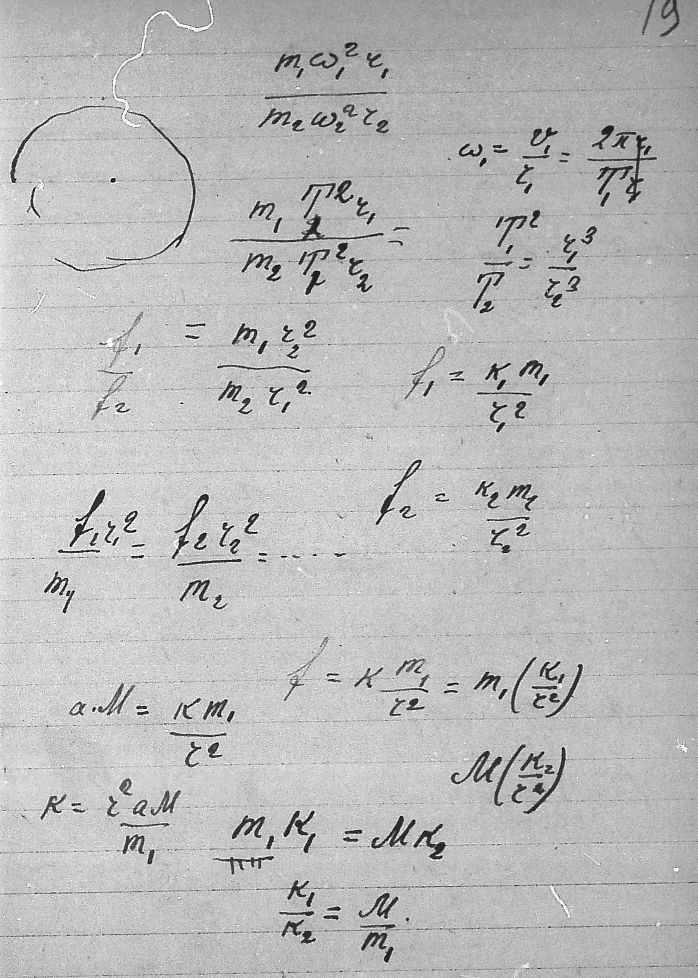 19
m₁ω₁²r₁ / m₂ω₂²r₂
ω₁ = v₁/r₁ = 2πr₁ / T₁r₁
m₁T₂²r₁ / m₂T₂²r₂ =
T₁²/T₂ = r₁³/r₂³
f₁/f₂ = m₁r₂² / m₂r₁²
f₁ = к₁m₁ / r₁²
f₂ = к₂m₂ / r₂²
f₁r₁²/m₁ = f₂r₂²/m₂ = .....
f = к m₁/r² = m₁(к₁/r²)
a.M = кm₁ / r²
M(к₂/r²)
к = r²aM / m₁
m₁к₁ = Mк₂
к₁/к₂ = M/m₁.